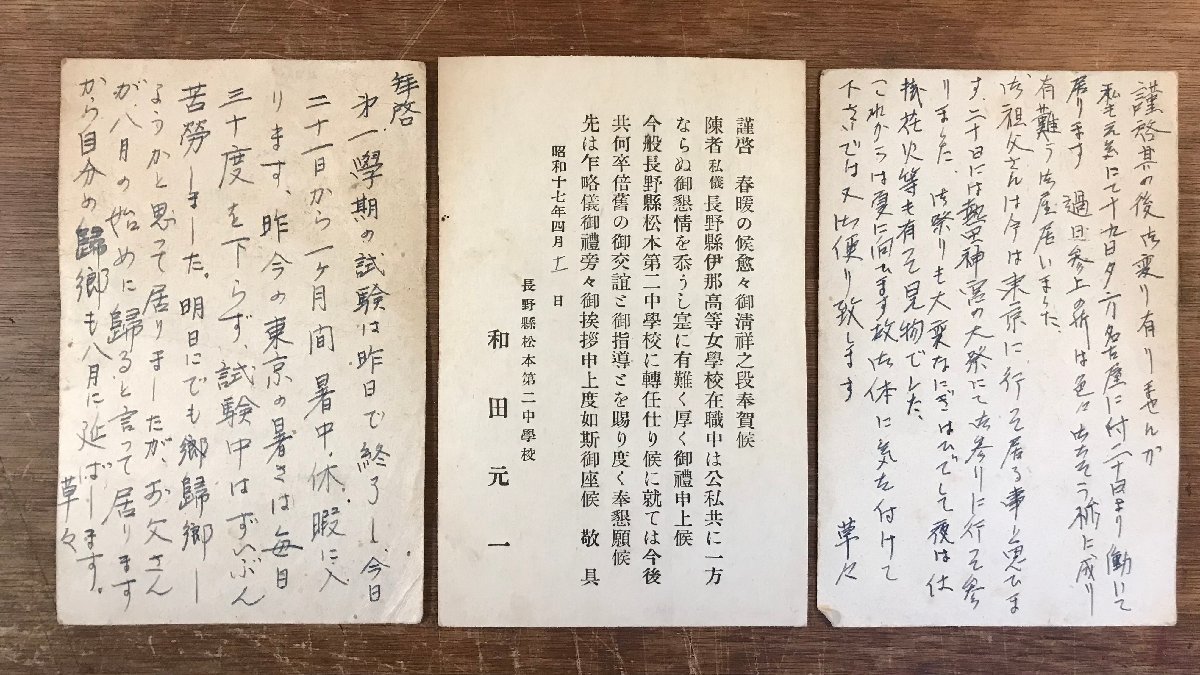 拜啓
第一學期の試験は昨日で終了し、今日
二十一日から一ヶ月間暑中休暇に入
ります、昨今の東京の暑さは毎日
三十度を下らず、試験中はずいぶん
苦勞しました。明日にでも鄉歸鄉し
ようかと思って居りましたが、お父さん
が、八月の始めに歸ると言って居ります
から自分の歸鄉も八月に延ばします。
草々
謹啓 春暖の候愈々御清祥之段奉賀候
陳者私儀長野縣伊那高等女學校在職中は公私共に一方
ならぬ御懇情を忝うし寔に有難く厚く御禮申上候
今般長野縣松本第二中學校に轉任仕り候に就ては今後
共何卒倍舊の御交誼と御指導とを賜り度く奉懇願候
先は乍略儀御禮旁々御挨拶申上度如斯御座候 敬具
昭和十七年四月十一日
長野縣松本第二中學校
和田元一
謹啓其の後御変り有りませんか
私も元気にて十九日夕方名古屋に付二十日より働いて
居ります 過日参上の折は色々御ちそう様に成り
有難う御座居いました。
御祖父さんは今は東京に行って居る事と思ひま
す、二十日には熱田神宮の大祭にて御参りに行って参
りました、御祭りも大変なにぎはひでして夜は仕
掛花火等も有って見物でした、
これからは夏に向ひます故御体に気を付けて
下さいでは又御便り致します
草々